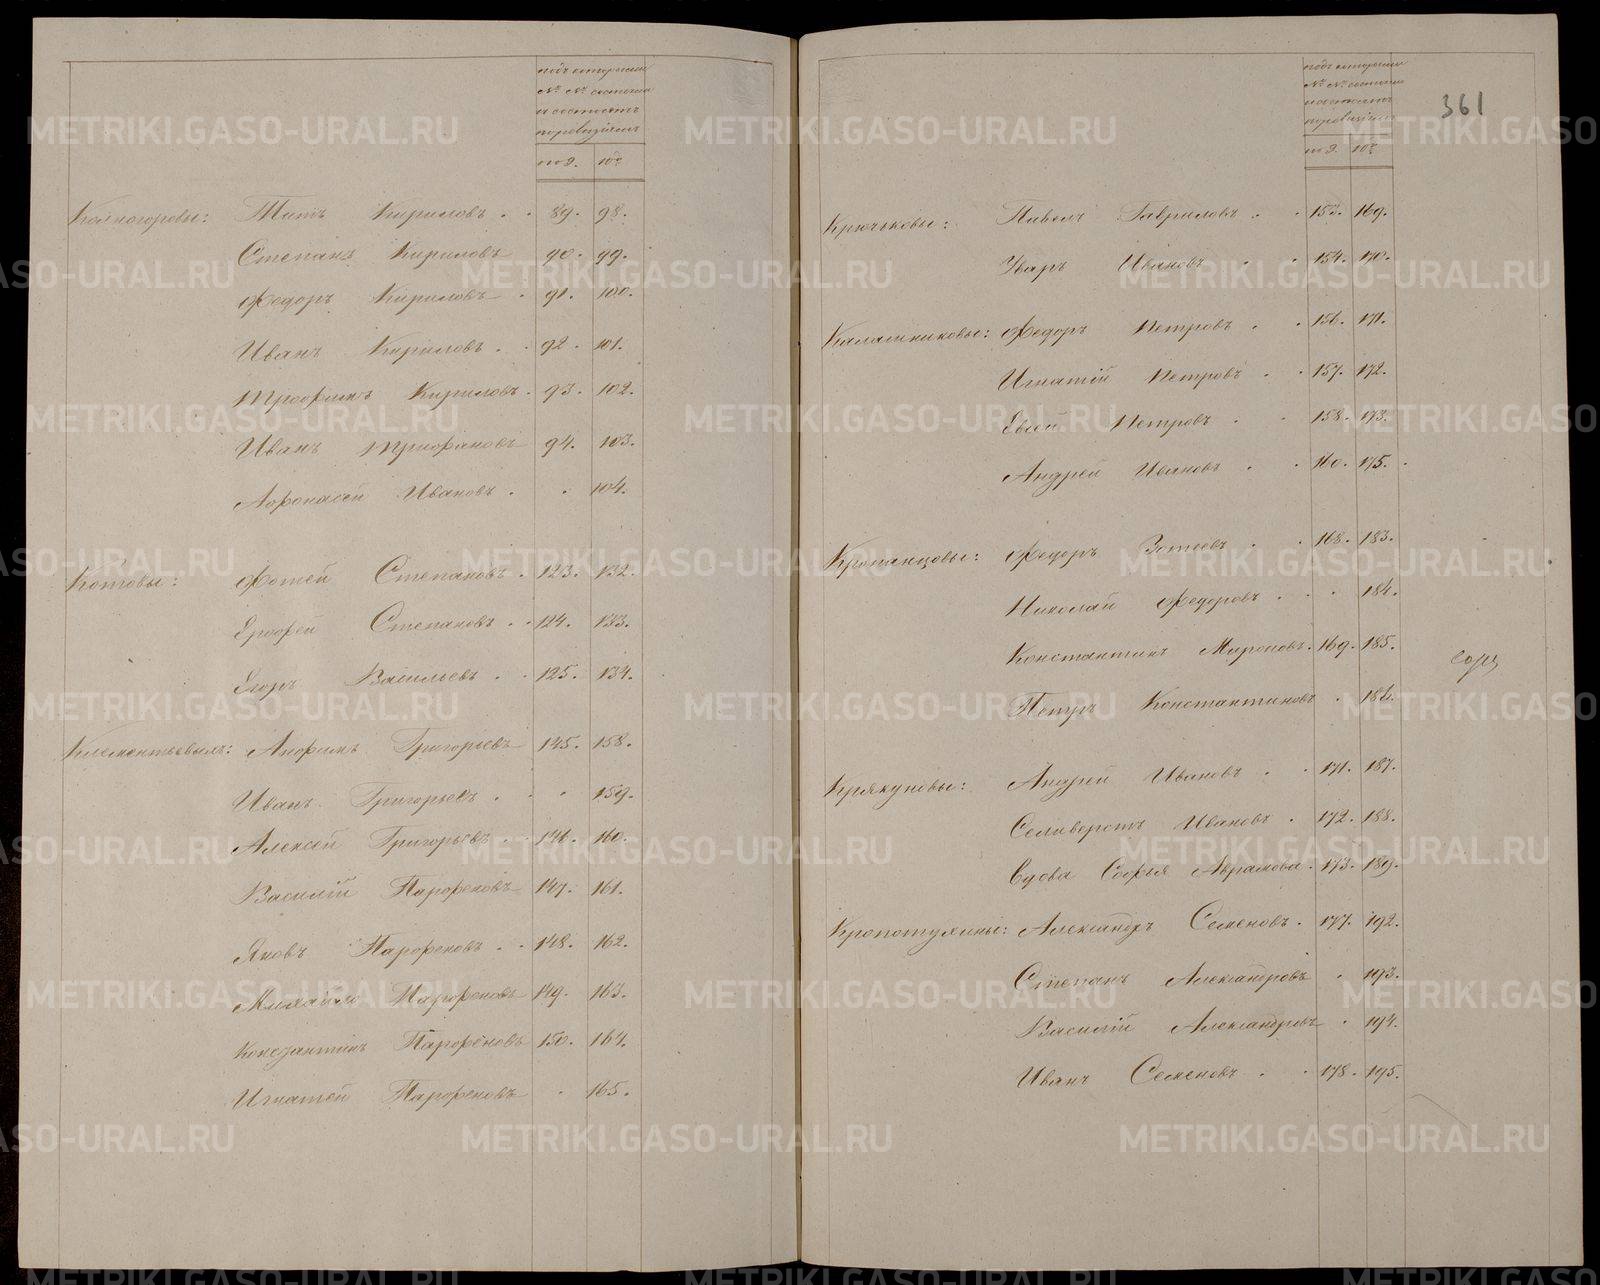 подъ которыми
№ № состоятъ
по ревизіямъ
по 9. 10й
Колногоровы: Титъ Кириловъ . . 89. 98.
Степанъ Кириловъ 90. 99.
Федоръ Кириловъ . 91. 100.
Иванъ Кириловъ . . 92. 101.
Трофимъ Кириловъ . 93. 102.
Иванъ Трифановъ 94. 103.
Афонасей Ивановъ . . 104.
Котовы: Фотей Степановъ . 123. 132.
Ерофей Степановъ . . 124. 133.
Егоръ Васильевъ . . 125. 134.
Клементьевыхъ: Анфимъ Григорьевъ 145. 158.
Иванъ Григорьевъ . . . 159.
Алексей Григорьевъ . . 146. 160.
Василій Парфеновъ 147. 161.
Яковъ Парфеновъ . . 148. 162.
Михайло Парфеновъ 149. 163.
Константинъ Парфеновъ 150. 164.
Игнатей Парфеновъ . 165.
361
подъ которыми
№ № состоятъ
по ревизіямъ
по 9. 10й
Крючьковы: Павелъ Гавриловъ . . 153. 169.
Уваръ Ивановъ . . 154. 170.
Калашниковы: Федоръ Петровъ . . 156. 171.
Игнатій Петровъ . . 157. 172.
Евсей Петровъ . . 158. 173.
Андрей Ивановъ . . 160. 175.
Кротенцовы: Федоръ Зотеевъ . . 168. 183.
Николай Федоровъ . . . 184.
Константинъ Мироновъ . 169. 185.
Петръ Константиновъ . 186.
Крякуновы: Андрей Ивановъ . . 171. 187.
Селиверстъ Ивановъ . 172. 188.
Вдова Софья Аврамова . 173. 189.
Кропотухины: Александръ Семеновъ . 177. 192.
Степанъ Александровъ . 193.
Василій Александровъ . 194.
Иванъ Семеновъ . . 178. 195.
METRIKI.GASO-URAL.RU